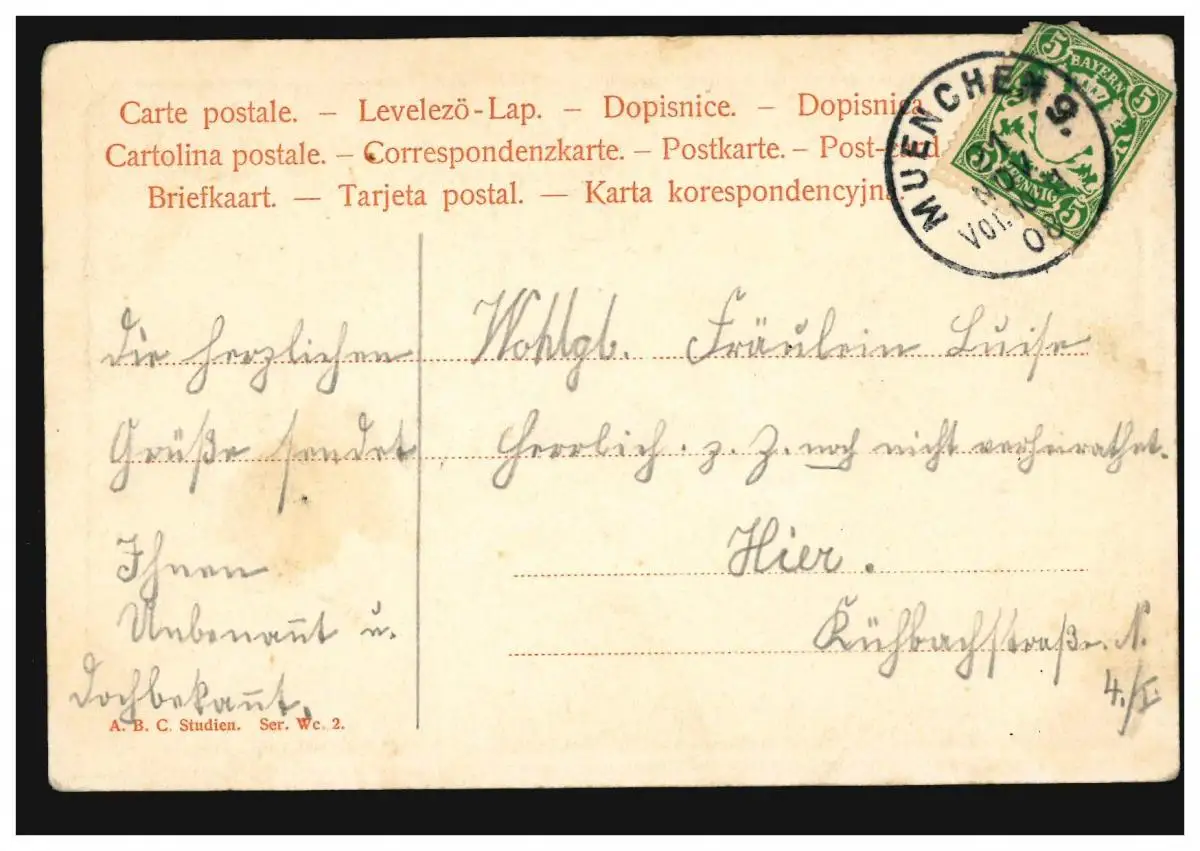 Carte postale. – Levelezö-Lap. – Dopisnice. – Dopisnica
Cartolina postale. – Correspondenzkarte. – Postkarte. – Post-card
Briefkaart. — Tarjeta postal. – Karta korespondencyjna.
MUENCHEN 9.
VOR.
08
5 BAYERN 5
5 PFENNIG 5
die herzlichen
Grüße sendet
Ihnen
Unbenan̄t u.
dochbekan̄t.
Wohlgb. Fräulein Luise
Herrlich. z. Z. noch nicht verheirathet.
Hier.
Kühbachstraße. N.
4./I.
A. B. C. Studien. Ser. Wc. 2.